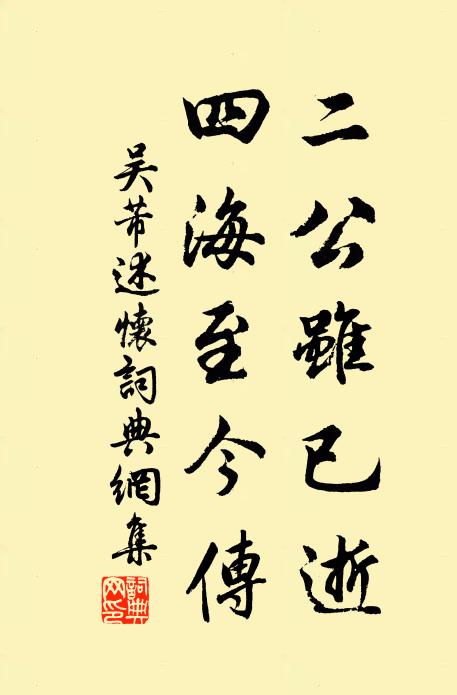 二公雖已逝
四海至今傳
吳芾述懷詞典網集
詞典網印